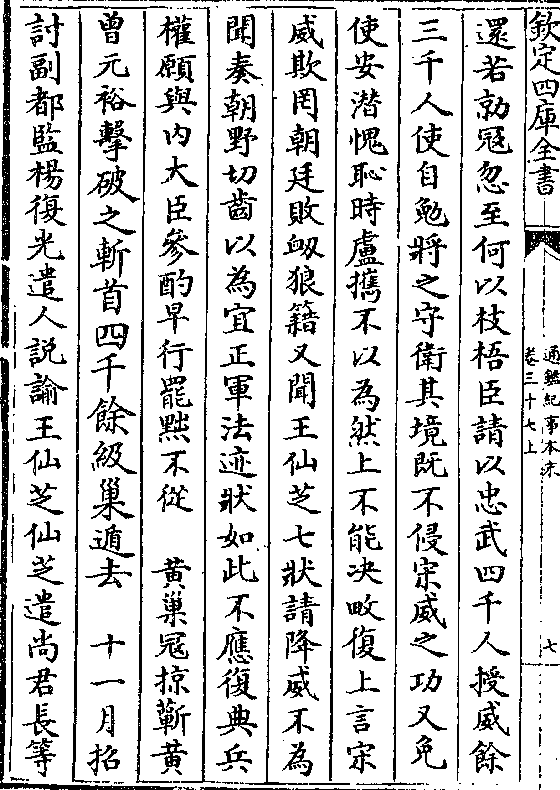 欽定四庫全書
通鑑紀事本末
卷三十七上
七
還若勍冦忽至何以枝梧臣請以忠武四千人授威餘
三千人使自勉將之守衛其境既不侵宋威之功又免
使安潛愧恥時盧攜不以為然上不能决畋復上言宋
威欺罔朝廷敗衂狼籍又聞王仙芝七狀請降威不為
聞奏朝野切齒以為宜正軍法迹狀如此不應復典兵
權願與内大臣參酌早行罷黜不從　黄巢冦掠蘄黄
曾元裕擊破之斬首四千餘級巢遁去　十一月招
討副都監楊復光遣人説諭王仙芝仙芝遣尚君長等